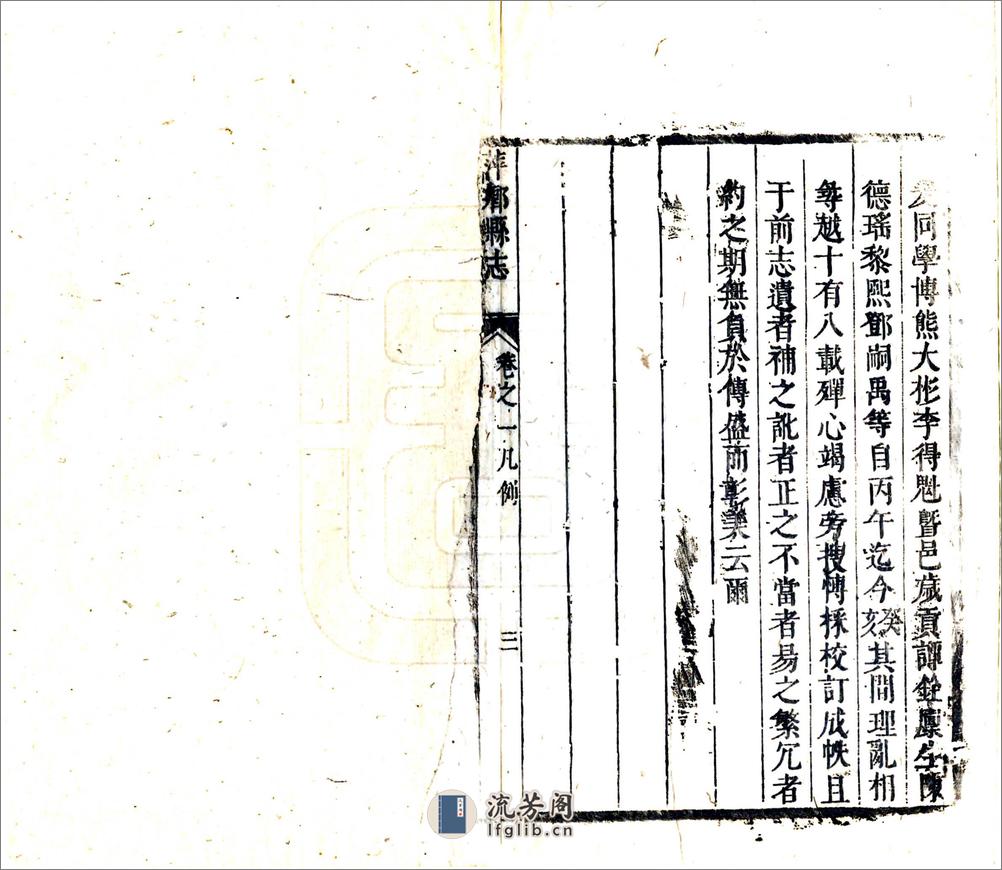 同學博熊大彬李得魁暨邑歲貢譚銓廩生陳
德瑤黎熙鄧嗣禹等自丙午迄今癸亥其間理亂相
尋越十有八載殫心竭慮旁搜博採校訂成帙且
于前志遺者補之訛者正之不當者易之繁冗者
約之期無負於傳盛而彰美云爾
萍鄉縣志
卷之一凡例
三
流芳阁
lfglib.cn